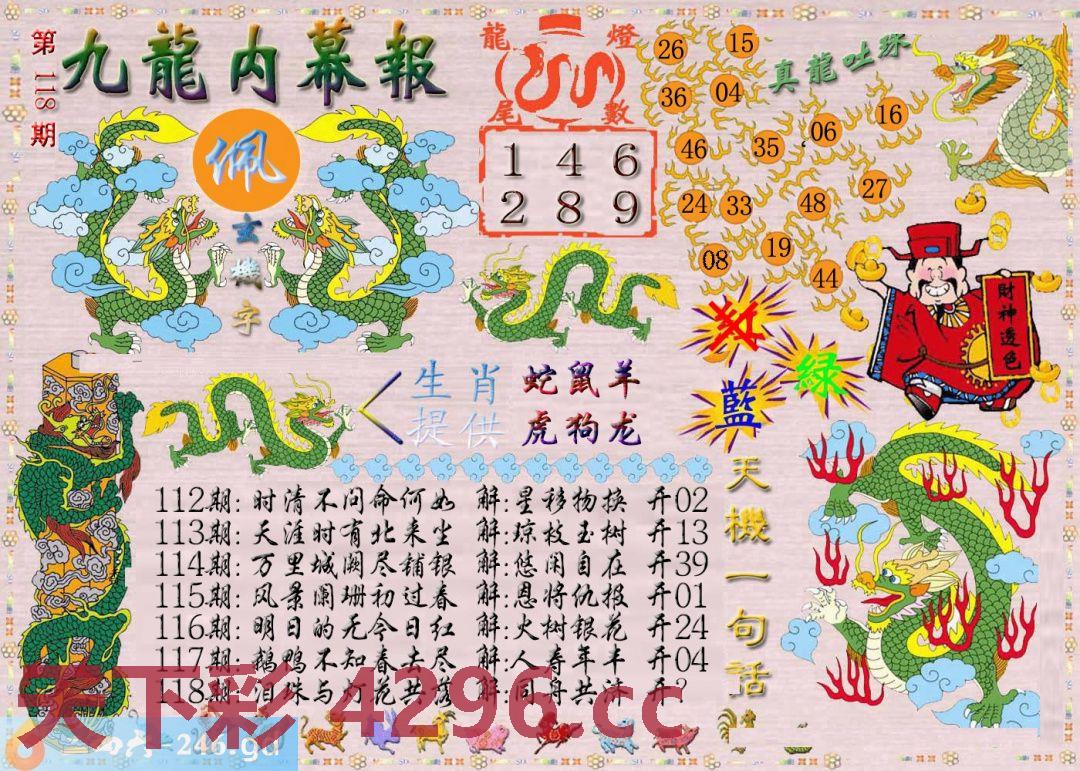 第118期
九龍内幕報
佩
玄機字
龍燈
尾數
1 4 6
2 8 9
26 15
36 04
46 35 06 16
24 33 48 27
08 19 44
真龍吐珠
財神透色
红
綠
藍
生肖 蛇鼠羊
提供 虎狗龙
天機一句话
112期: 时清不问命何如 解:星移物换 开02
113期: 天涯时有北来尘 解:琼枝玉树 开13
114期: 万里城阙尽铺银 解:悠闲自在 开39
115期: 风景阑珊初过春 解:恩将仇报 开01
116期: 明日的无今日红 解:火树银花 开24
117期: 鹅鸭不知春去尽 解:人寿年丰 开04
118期: 泪珠与灯花共落 解:同舟共济 开?
天下彩 4296.cc
=246.gd